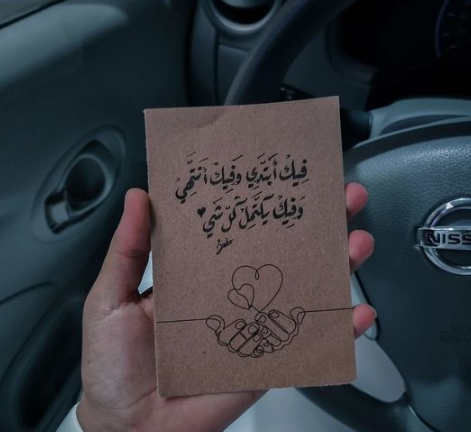 فِيكْ أَبْتَدِي وَفِيكْ أَنتَهِي
وَفِيكْ يِكْتِمِلْ كُلّ شَي
NISS